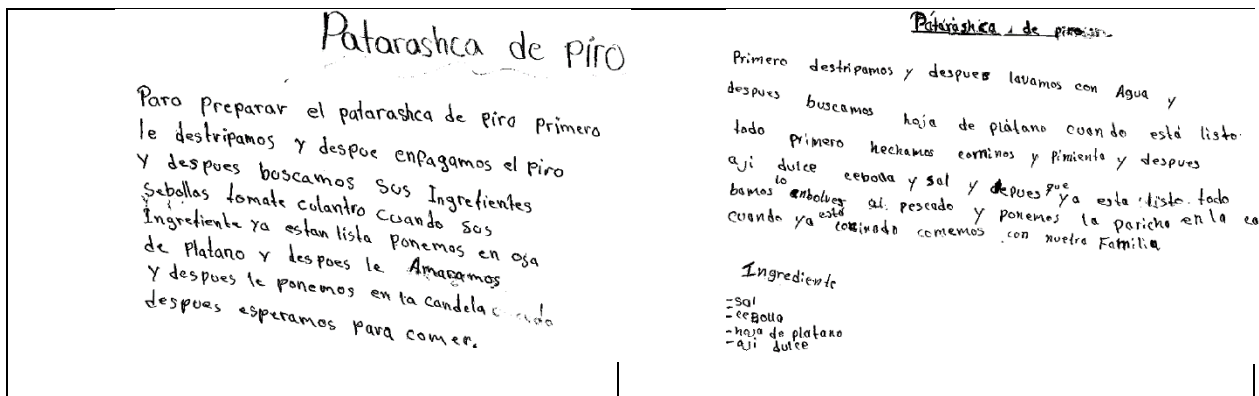 Patarashca de piro
Para preparar el patarashca de piro primero
le destripamos y despue enpagamos el piro
y despues boscamos sus Ingrefientes
Sebollas tomate culantro cuando sus
Ingrefiente ya estan lista ponemos en oja
de platano y despues le Amaramos
y despues le ponemos en la candela
despues esperamos para comer.
Patarashca de
Primero destripamos y despues lavamos con Agua y
despues buscamos hoja de plátano cuando está listo.
todo primero hechamos cominos y pimienta y despues
aji dulce cebolla y sal y depues que ya esta listo todo
bamos lo enbolver al pescado y ponemos la paricho en la
cuando ya está cocinado comemos con nuetra Familia
Ingrediente
-Sal
-ceBolla
-hoja de platano
-aji dulce